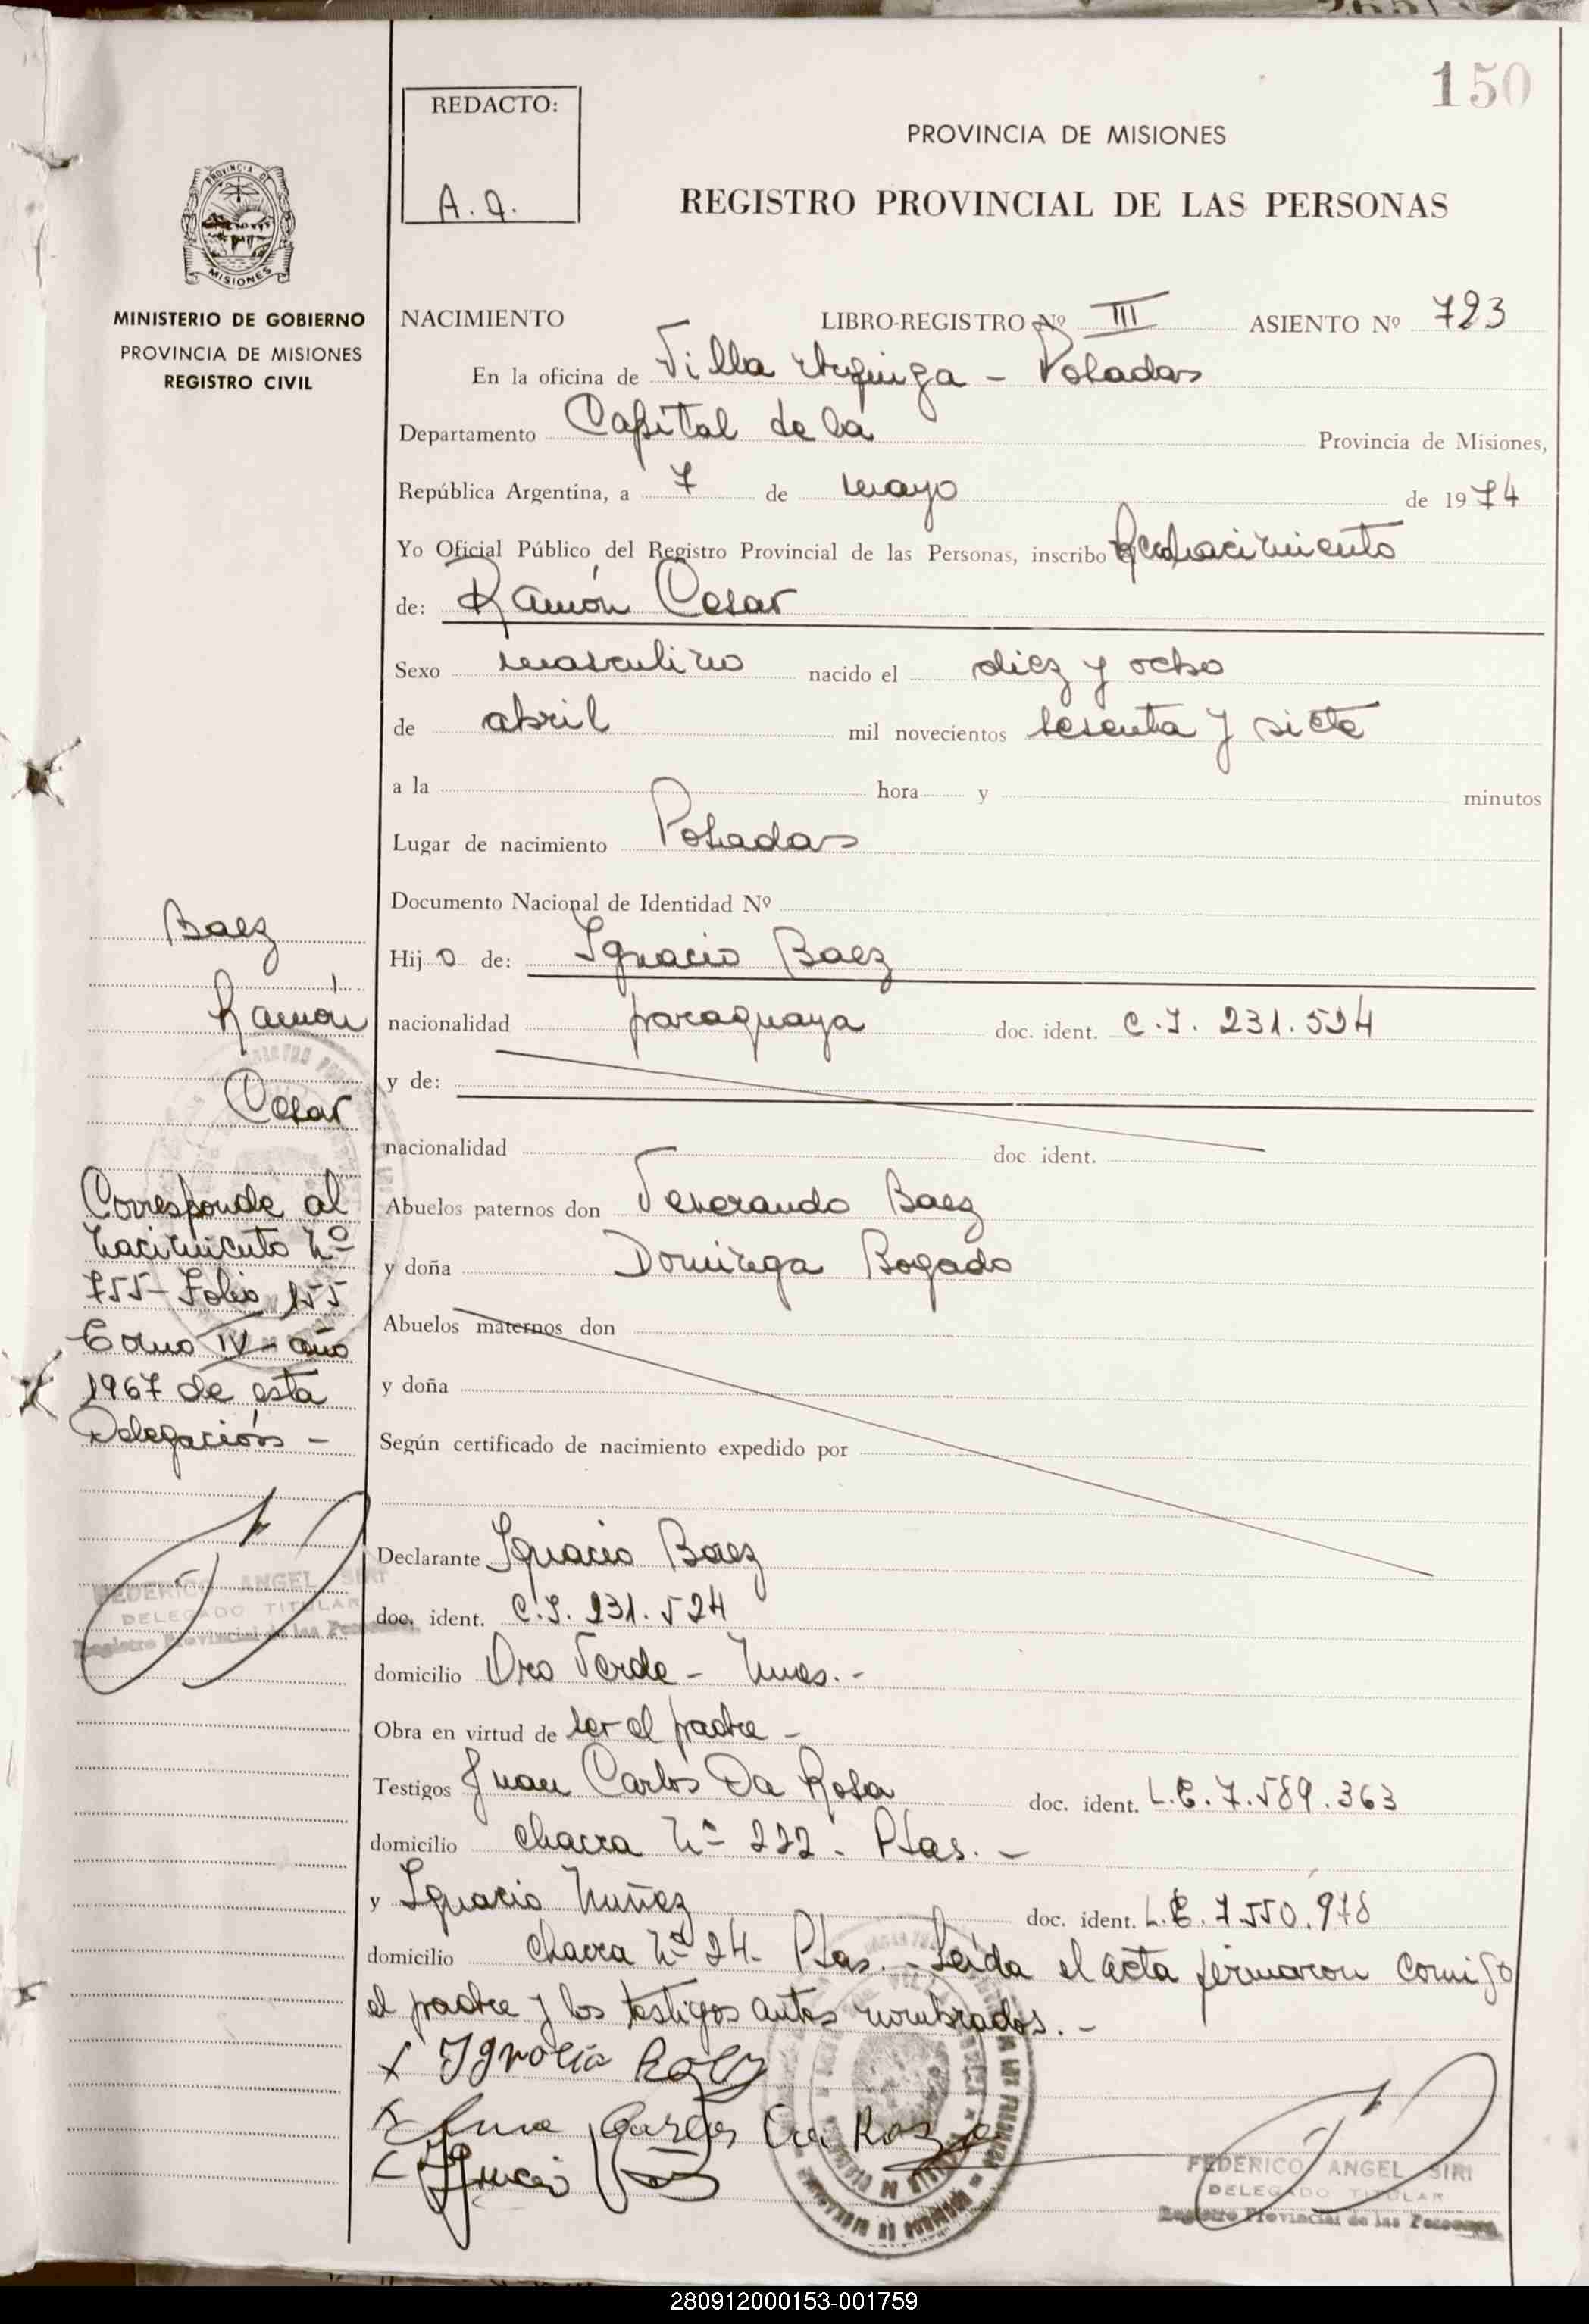 150
REDACTO:
A. A.
PROVINCIA DE MISIONES
REGISTRO PROVINCIAL DE LAS PERSONAS
PROVINCIA DE
MISIONES
MINISTERIO DE GOBIERNO
PROVINCIA DE MISIONES
REGISTRO CIVIL
NACIMIENTO LIBRO-REGISTRO Nº III ASIENTO Nº 723
En la oficina de Villa Urquiza - Posadas
Departamento Capital de la Provincia de Misiones,
República Argentina, a 7 de mayo de 1974
Yo Oficial Público del Registro Provincial de las Personas, inscribo
de: Ramón Cesar
Sexo masculino nacido el diez y ocho
de abril mil novecientos sesenta y siete
a la hora y minutos
Lugar de nacimiento Posadas
Documento Nacional de Identidad Nº
Hijo de: Ignacio Baez
nacionalidad paraguaya doc. ident. C.I. 231.524
y de:
nacionalidad doc. ident.
Abuelos paternos don Venerando Baez
y doña Dominga Bogado
Abuelos maternos don
y doña
Según certificado de nacimiento expedido por
Declarante Ignacio Baez
doc. ident. C.I. 231.524
domicilio Oro Verde - Mnes. -
Obra en virtud de ser el padre -
Testigos Juan Carlos Da Rosa doc. ident. L.E. 7.589.363
domicilio chacra Nº 222 - Pdas. -
y Ignacio Nuñez doc. ident. L.E. 7.550.978
domicilio chacra Nº 24 - Pdas. - Leída el acta firmaron comigo
el padre y los testigos antes nombrados. -
x Ignacio Baez
Baez
Ramón
Cesar
Corresponde al
nacimiento Nº
755 - Folio 155
Tomo IV - año
1967 de esta
Delegación -
FEDERICO ANGEL SIRI
DELEGADO TITULAR
Registro Provincial de las Personas
FEDERICO ANGEL SIRI
DELEGADO TITULAR
Registro Provincial de las Personas
280912000153-001759